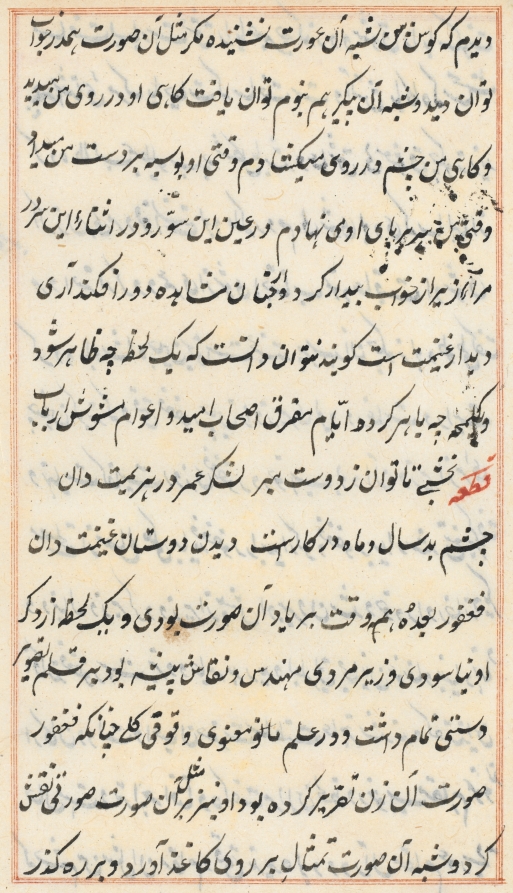 دیدم که گوش من شبه آن عورت نشنیده مگر مثل آن صورت همدر خواب
توان دید و شبه آن پیکر هم بنوم توان یافت کاهی او در روی من میدید
و کاهی من چشم در روی میکشادم وقتی او بوسه بر دست من میداد
وقتی من سر بر پای او می نهادم در عین این سور و در اثناء این سرور
مرا وزیر از خواب بیدار کرد و از چنان مشاهده دور افکند آری
دیدار غنیمت است کویند نتوان دانست که یک لحظه چه ظاهر شود
و چه باهر کردد ایام مفرق اصحاب امید و اعوام مشوش ارباب
قطعه نخشبی تا توان ز دوست مبر لشکر عمر در هزیمت دان
چشم بد سال و ماه در کارست دیدن دوستان غنیمت دان
فغفور بعده همه وقت بر یاد آن صورت بودی و یک لحظه از ذکر
او نیاسودی وزیر مردی مهندس و نقاش پیشه بود بر قلم تصویر
دستی تمام داشت و در علم مانی معنوی وقوفی کلی چنانکه فغفور
صورت آن زن تقریر کرده بود او نیز بر مثل آن صورت صورتی نقش
کرد و شبه آن صورت تمثال بر روی کاغذ آورد و بر ره کذر